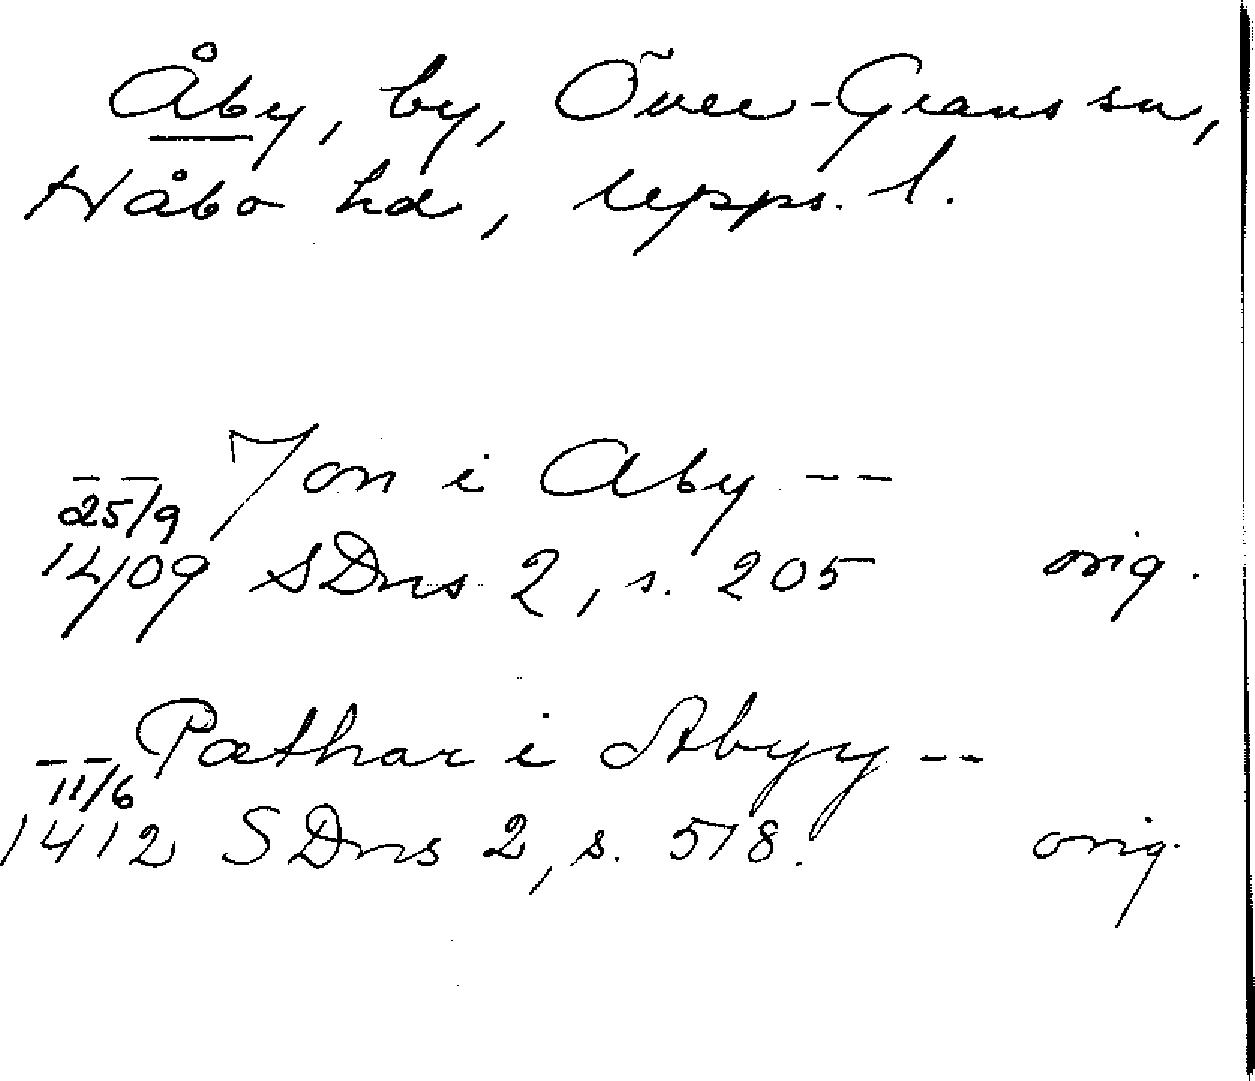 Åby, by, Över-Grans sn,
Håbo hd, Upps. l.
-- Jon i Aby --
25/9
1409 SDns 2, s. 205 orig.
-- Pæthar i Abyy --
11/6
1412 SDns 2, s. 518. orig.